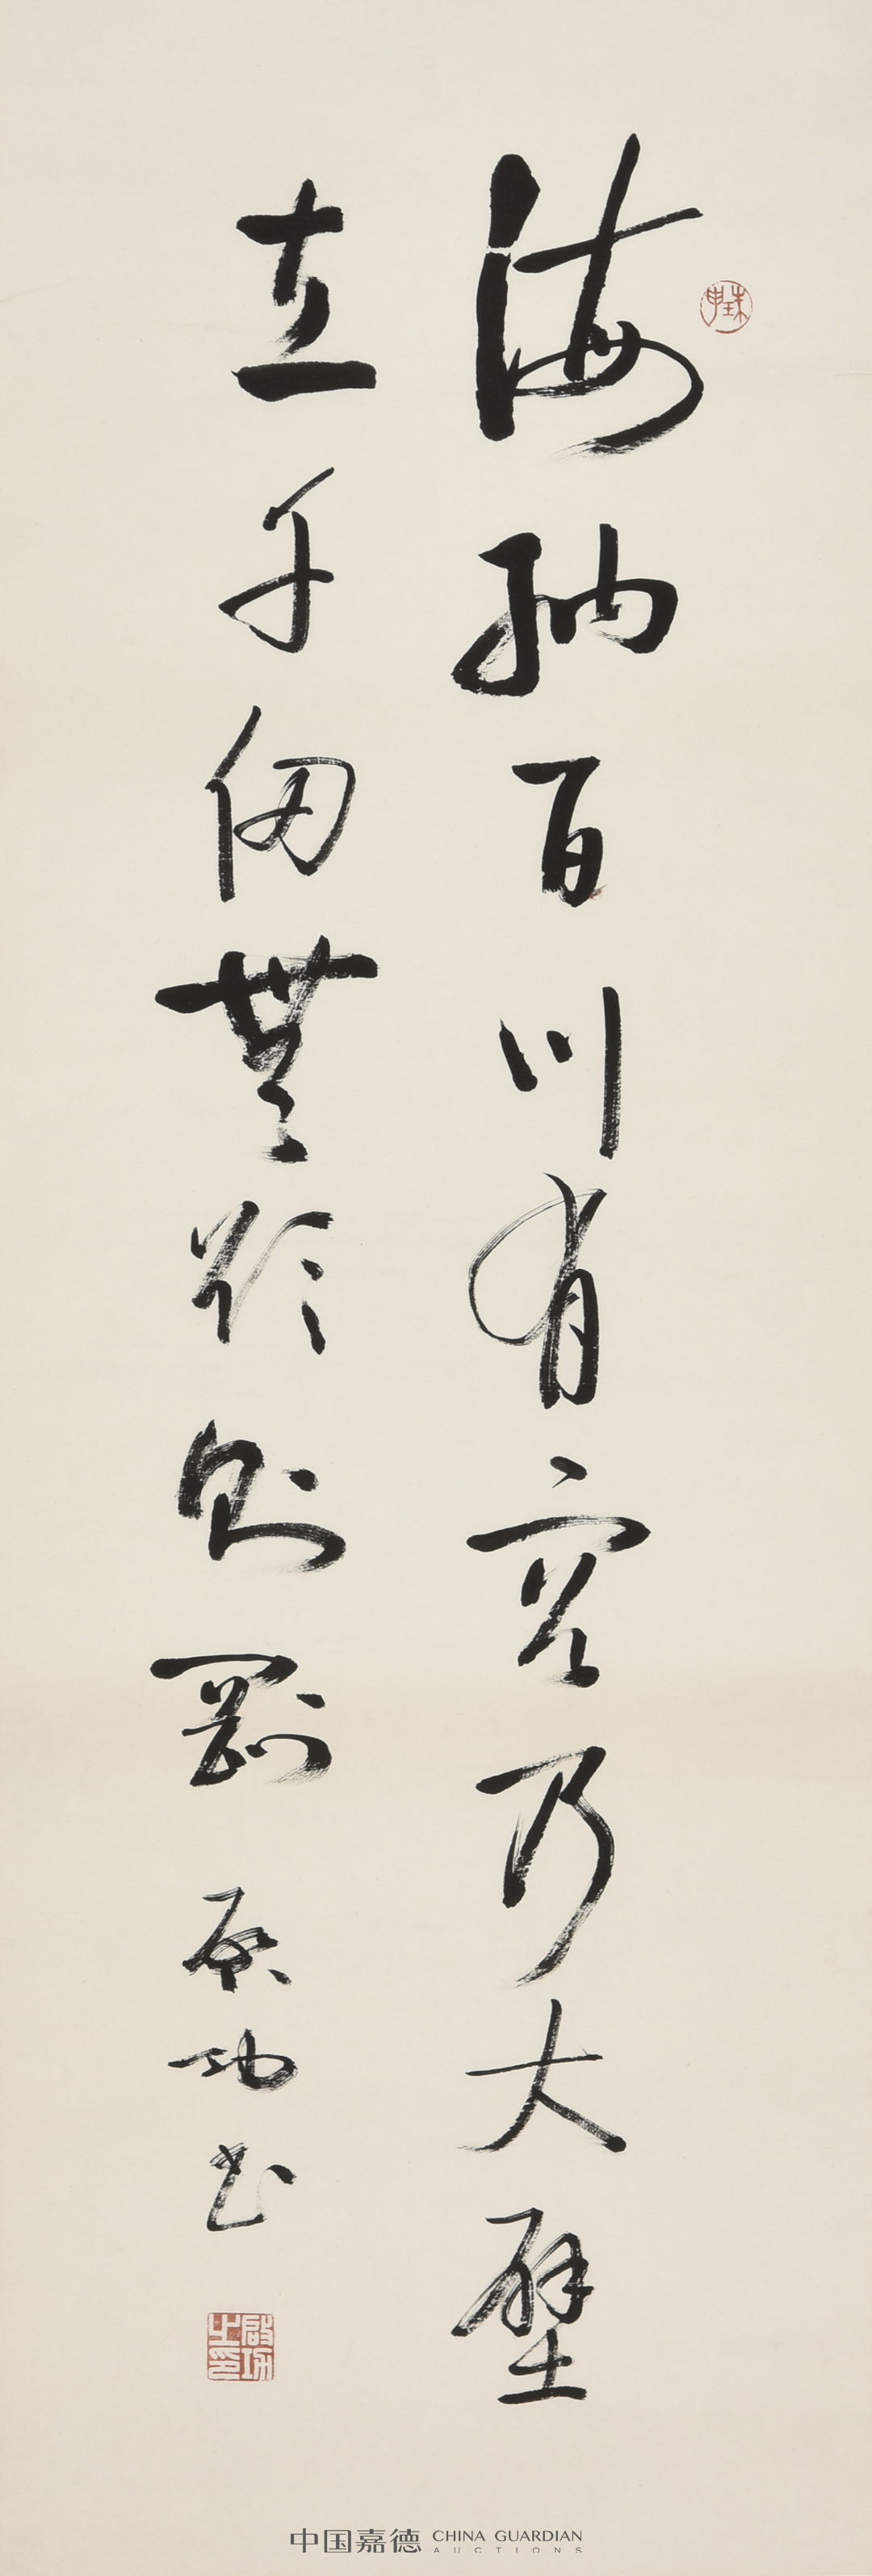 海納百川有容乃大壁
立千仞無欲則剛 启功书
珠申
啟功之印
中国嘉德 CHINA GUARDIAN
AUCTIONS